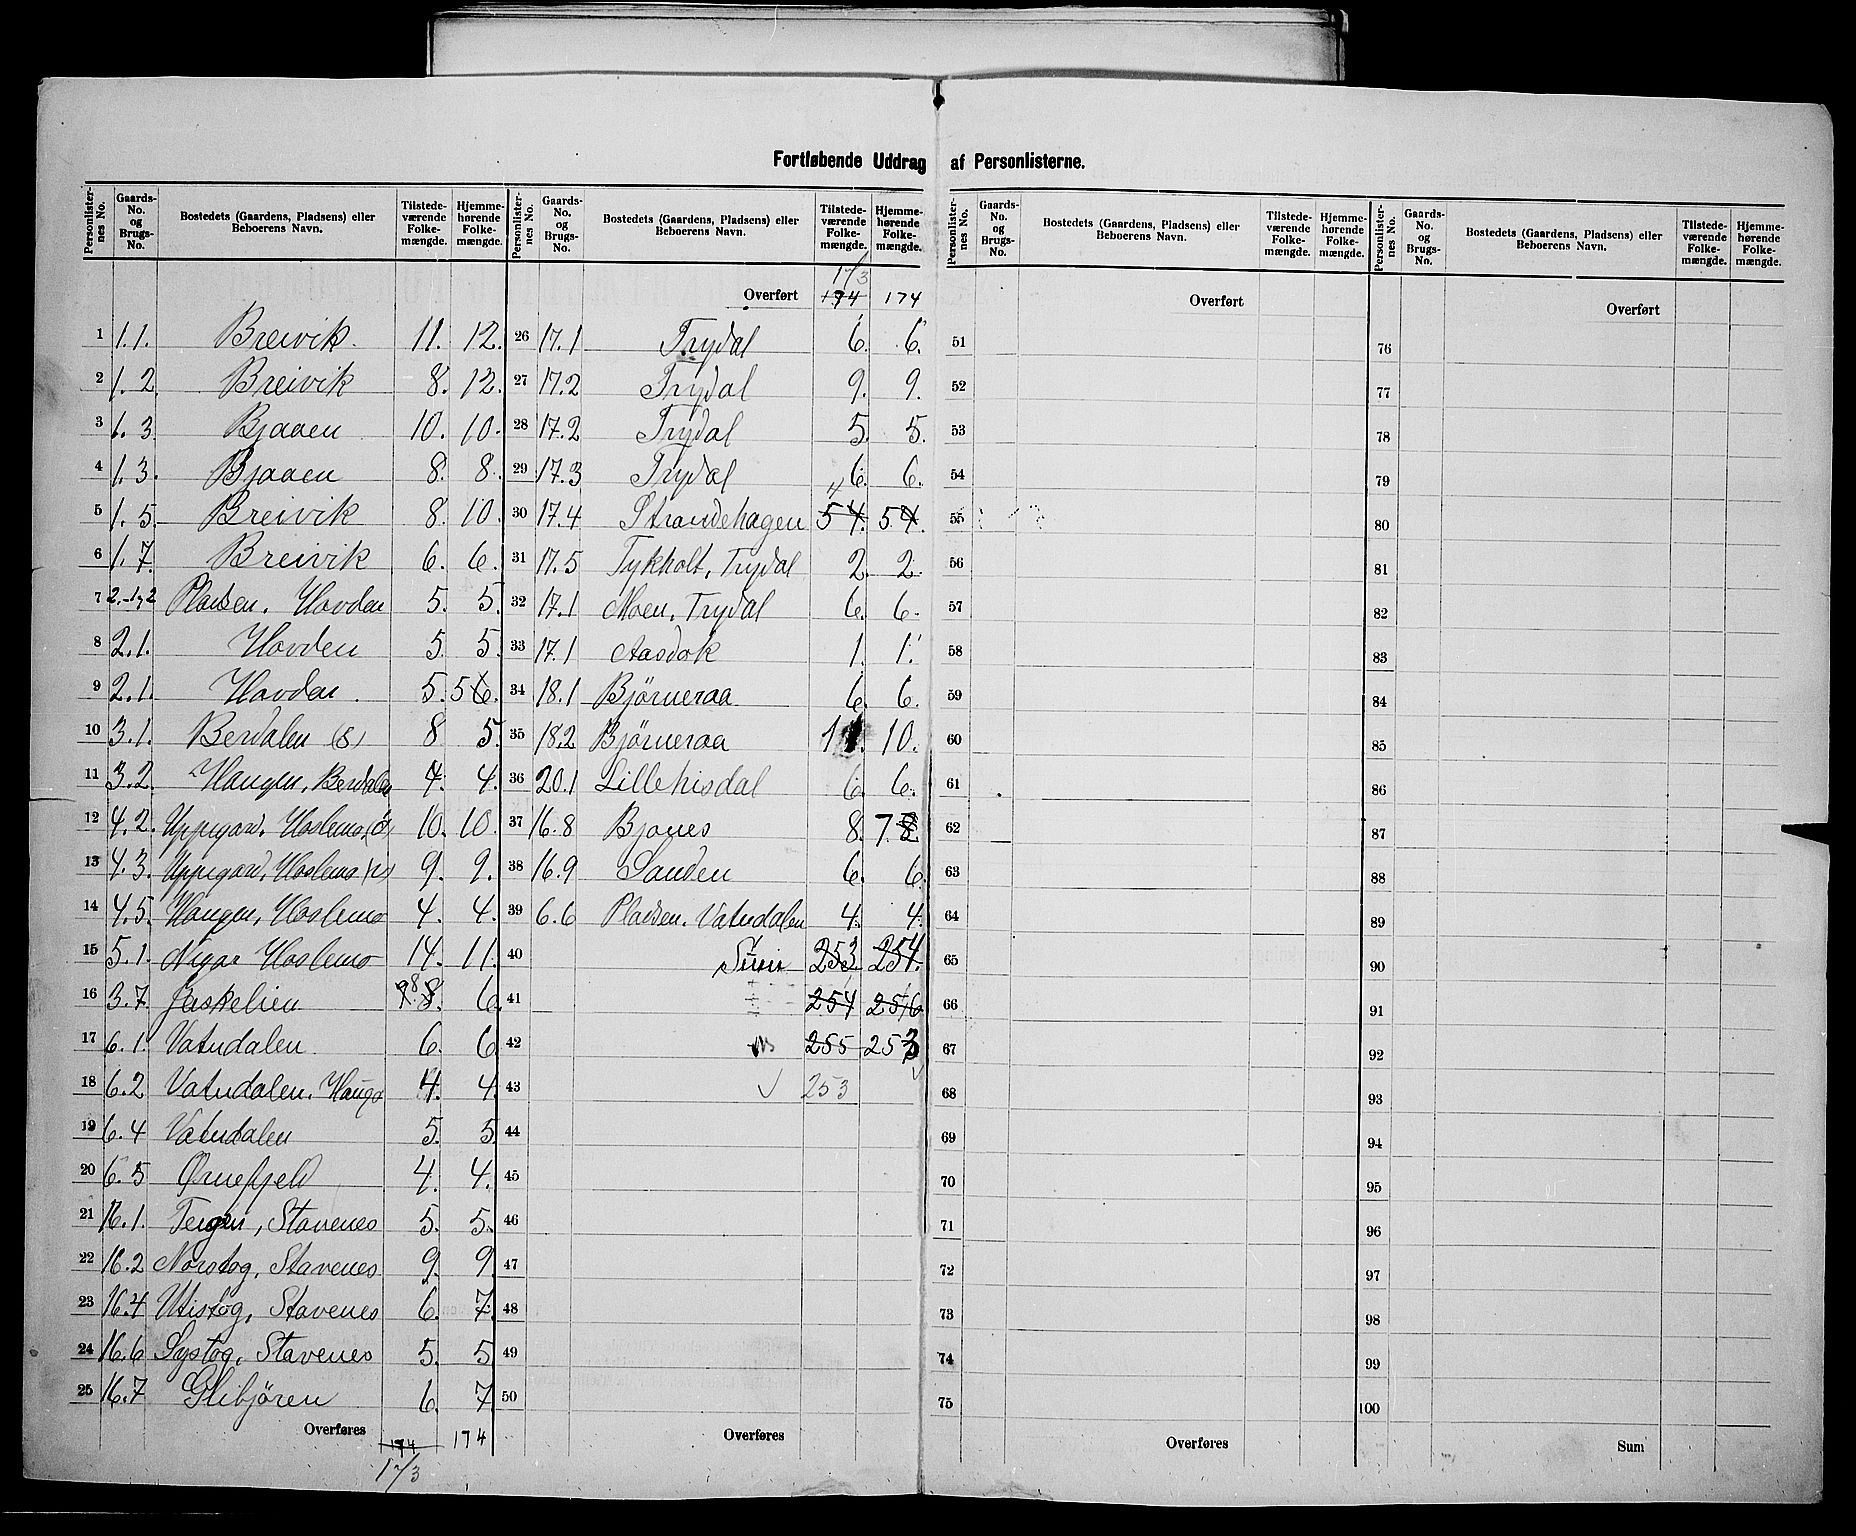 Fortløbende Uddrag af Personlisterne.
Personlister-nes No. | Gaards-No. og Brugs-No. | Bostedets (Gaardens, Pladsens) eller Beboerens Navn. | Tilstede-værende Folke-mængde. | Hjemme-hørende Folke-mængde.
1 | 1.1. | Breivik. | 11. | 12.
2 | 1.2. | Breivik | 8. | 12.
3 | 1.3. | Bjaaen | 10. | 10.
4 | 1.3. | Bjaaen | 8. | 8.
5 | 1.5. | Breivik | 8. | 10.
6 | 1.7. | Breivik | 6. | 6.
7 | 2.-1,2 | Pladsen. Hovden | 5. | 5.
8 | 2.1. | Hovden | 5. | 5.
9 | 2.1. | Hovden. | 5. | 5 6.
10 | 3.1. | Berdalen (S) | 8 | 5.
11 | 3.2. | Haugen, Berdalen | 4. | 4.
12 | 4.2. | Uppegard. Hoslemo, (ø) | 10. | 10.
13 | 4.3. | Uppegard, Hoslemo | 9. | 9.
14 | 4.5. | Haugen, Hoslemo | 4. | 4.
15 | 5.1. | Nigar Hoslemo | 14. | 11.
16 | 3.7. | Jaskelien | 8 8. | 6.
17 | 6.1. | Vatndalen. | 6. | 6.
18 | 6.2 | Vatndalen. Hauge | 4. | 4.
19 | 6.4 | Vatndalen | 5. | 5.
20 | 6.5 | Ørnefjeld | 4. | 4.
21 | 16.1. | Teigen, Stavenes | 5. | 5.
22 | 16.2 | Norstog, Stavenes | 9. | 9.
23 | 16.4 | Utistog, Stavenes | 6. | 7.
24 | 16.6 | Systog, Stavenes | 5. | 5
25 | 16.7 | Glibjøren | 6. | 7
Overføres | 174 | 174
173
Personlister-nes No. | Gaards-No. og Brugs-No. | Bostedets (Gaardens, Pladsens) eller Beboerens Navn. | Tilstede-værende Folke-mængde. | Hjemme-hørende Folke-mængde.
173
Overført | 174 | 174
26 | 17.1 | Trydal | 6. | 6.
27 | 17.2 | Trydal | 9. | 9.
28 | 17.2 | Trydal | 5. | 5.
29 | 17.3 | Trydal | 6. | 6.
30 | 17.4 | Strandehagen | 5 4. | 5 4.
31 | 17.5 | Tykholt, Trydal | 2. | 2.
32 | 17.1 | Moen, Trydal | 6. | 6.
33 | 17.1 | Aasdok | 1. | 1.
34 | 18.1 | Bjørneraa | 6. | 6.
35 | 18.2 | Bjørneraa | 11. | 10.
36 | 20.1 | Lillehisdal | 6. | 6.
37 | 16.8 | Bjones | 8. | 7. 8.
38 | 16.9 | Sanden | 6. | 6.
39 | 6.6 | Pladsen. Vatndalen | 4. | 4.
40 | Sum | 253 | 254.
41 | 254 | 256
42 | 255 | 253
43 | 253
44
45
46
47
48
49
50
Overføres
Personlister-nes No. | Gaards-No. og Brugs-No. | Bostedets (Gaardens, Pladsens) eller Beboerens Navn. | Tilstede-værende Folke-mængde. | Hjemme-hørende Folke-mængde.
Overført
51
52
53
54
55
56
57
58
59
60
61
62
63
64
65
66
67
68
69
70
71
72
73
74
75
Overføres
Personlister-nes No. | Gaards-No. og Brugs-No. | Bostedets (Gaardens, Pladsens) eller Beboerens Navn. | Tilstede-værende Folke-mængde. | Hjemme-hørende Folke-mængde.
Overført
76
77
78
79
80
81
82
83
84
85
86
87
88
89
90
91
92
93
94
95
96
97
98
99
100
Sum